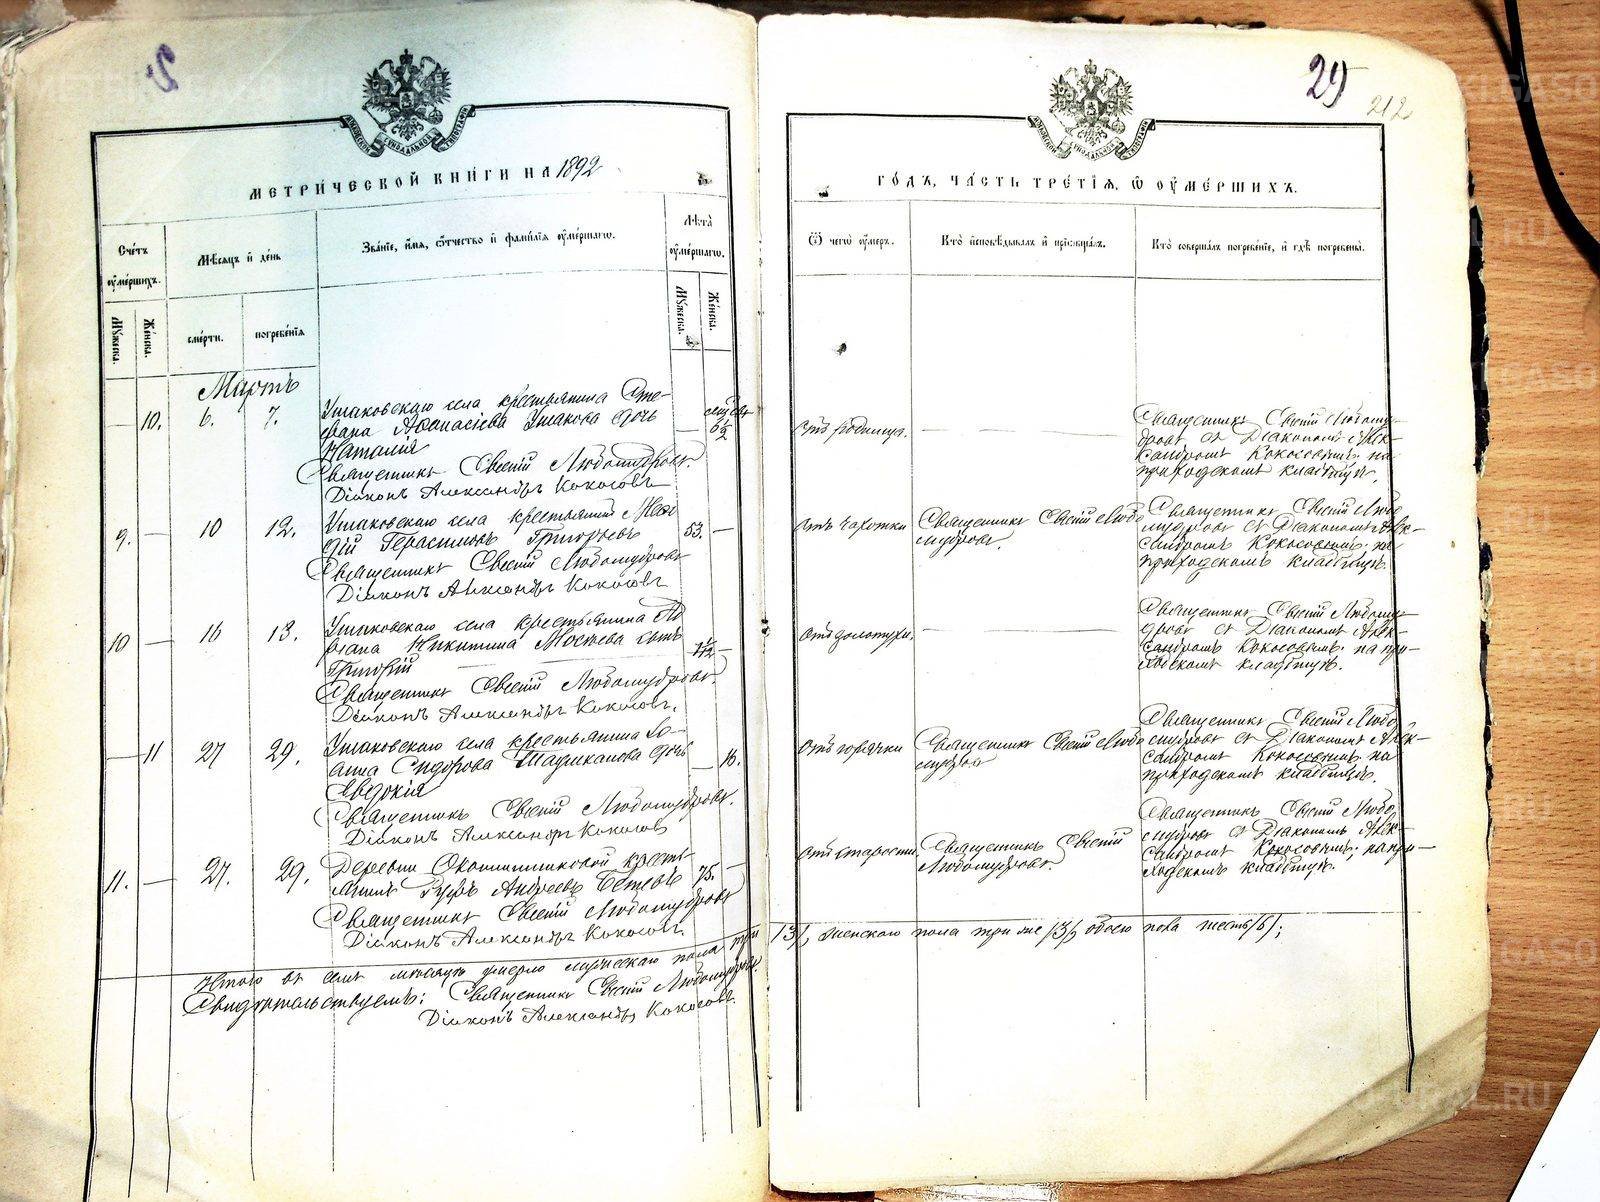 29
212
МЕТРИ́ЧЕСКОЙ КНИ́ГИ НА 1892
ГО́ДЪ, ЧА́СТЬ ТРЕ́ТІЯ, Ѿ ОУ҆МЕ́РШИХЪ.
Сче́тъ оу҆ме́ршихъ.
Мѣ́сяцъ и де́нь
Зва́ніе, и́мя, ѻ҆́тчество и фами́лія оу҆ме́ршагѡ.
Лѣ́та оу҆ме́ршагѡ.
Му́жеска.
Же́нска.
сме́рти.
погребе́нія
Му́жеска.
Же́нска.
Ѿ чегѡ̀ оу҆́меръ.
Кто̀ и҆сповѣ́дывалъ и прїѡбща́лъ.
Кто̀ соверша́лъ погребе́ніе, и гдѣ̀ погребены̀.
Мартъ
— 10. 6. 7.
Ушаковскаго села крестьянина Сте-
фана Аѳанасіева Ушакова дочь
Наталія
Священникъ Евгеній Любомудровъ.
Діаконъ Александръ Кокосовъ
Отъ родимца. — —
Священникъ Евгеній Любому-
дровъ съ Діакономъ Алек-
сандромъ Кокосовымъ на
приходскомъ кладбищѣ.
9. — 10 12.
Ушаковскаго села крестьянинъ
Герасимовъ Григорьевъ 53. —
Священникъ Евгеній Любомудровъ
Діаконъ Александръ Кокосовъ
Отъ чахотки
Священникъ Евгеній Любо
мудровъ.
Священникъ Евгеній Любо
мудровъ съ Діакономъ Алек-
сандромъ Кокосовымъ на
приходскомъ кладбищѣ.
10 — 13.
Ушаковскаго села крестьянина
Никитина сынъ 1½ —
Григорій
Священникъ Евгеній Любомудровъ.
Діаконъ Александръ Кокосовъ.
Отъ золотухи. — —
Священникъ Евгеній Любому-
дровъ съ Діакономъ Алек-
сандромъ Кокосовымъ на при-
ходскомъ кладбищѣ.
— 11 27 29.
Ушаковскаго села крестьянина Іо-
анна Сидорова дочь — 16.
Евдокія
Священникъ Евгеній Любомудровъ.
Діаконъ Александръ Кокосовъ
Отъ горячки
Священникъ Евгеній Любо
мудровъ
Священникъ Евгеній Любо
мудровъ съ Діакономъ Алек-
сандромъ Кокосовымъ на
приходскомъ кладбищѣ.
11. — 27. 29.
Деревни кресть-
янинъ Андреевъ 75. —
Священникъ Евгеній Любомудровъ
Діаконъ Александръ Кокосовъ.
Отъ старости.
Священникъ Евгеній
Любомудровъ.
Священникъ Евгеній Любо
мудровъ съ Діакономъ Алек-
сандромъ Кокосовымъ; на при-
ходскомъ кладбищѣ.
Итого въ семъ мѣсяцѣ умерло мужескаго пола три /3/, женскаго пола три же /3/, обоего пола шесть /6/;
Свидѣтельствуемъ: Священникъ Евгеній Любомудровъ.
Діаконъ Александръ Кокосовъ.